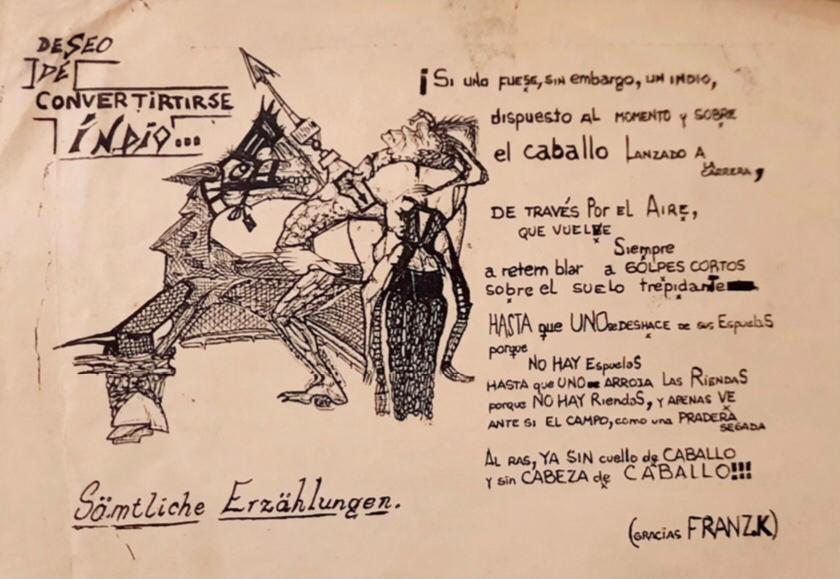 DESEO
DE
CONVERTIRTIRSE
INDIO...
¡SI UNO FUESE, SIN embargo, UN INDIO,
dispuesto AL MOMENTO y SOBRE
el caballo LANZADO A
LA
CARRERA,
DE TRAVÉS Por EL AIRE,
QUE VUELVE
Siempre
a retemblar a GÓLPES CORTOS
sobre el suelo trepidante
HASTA que UNO se DESHACE de sus EspuelaS
porque
NO HAY EspuelaS
HASTA que UNO ARROJA LAS RIENDAS
porque NO HAY RiendaS, y APENAS VE
ANTE SI EL CAMPO, como una PRADERA
SEGADA
AL RAS, YA SIN cuello de CABALLO
Y sin CABEZA de CABALLO!!!
Sämtliche Erzählungen.
(GRACIAS FRANZ.K)